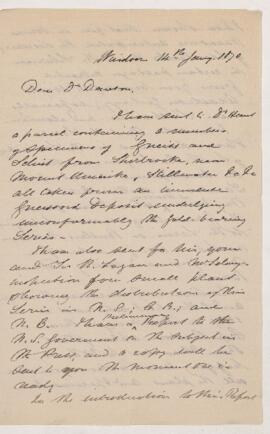 Windsor 14th Jany. 1870
Dear Dr Dawson,
I have sent to Dr Hunt
a parcel containing a number
of specimens of Gneiss and
Schist from Sherbrooke, near
Mount Uniacke, Stillwater &c &c
all taken from an immense
Gneissoid Deposit underlying
unconformably the gold bearing
Series.
I have also sent for his, your
and Sir W. Logan and
inspection four small plans
showing the distribution of this
Series in N.S., C.B., and
N.B. I have a Preliminary Report to the
N.S. Government on the subject in
the Press, and a copy will be
sent to you the moment it is
ready.
In the introduction to this Report